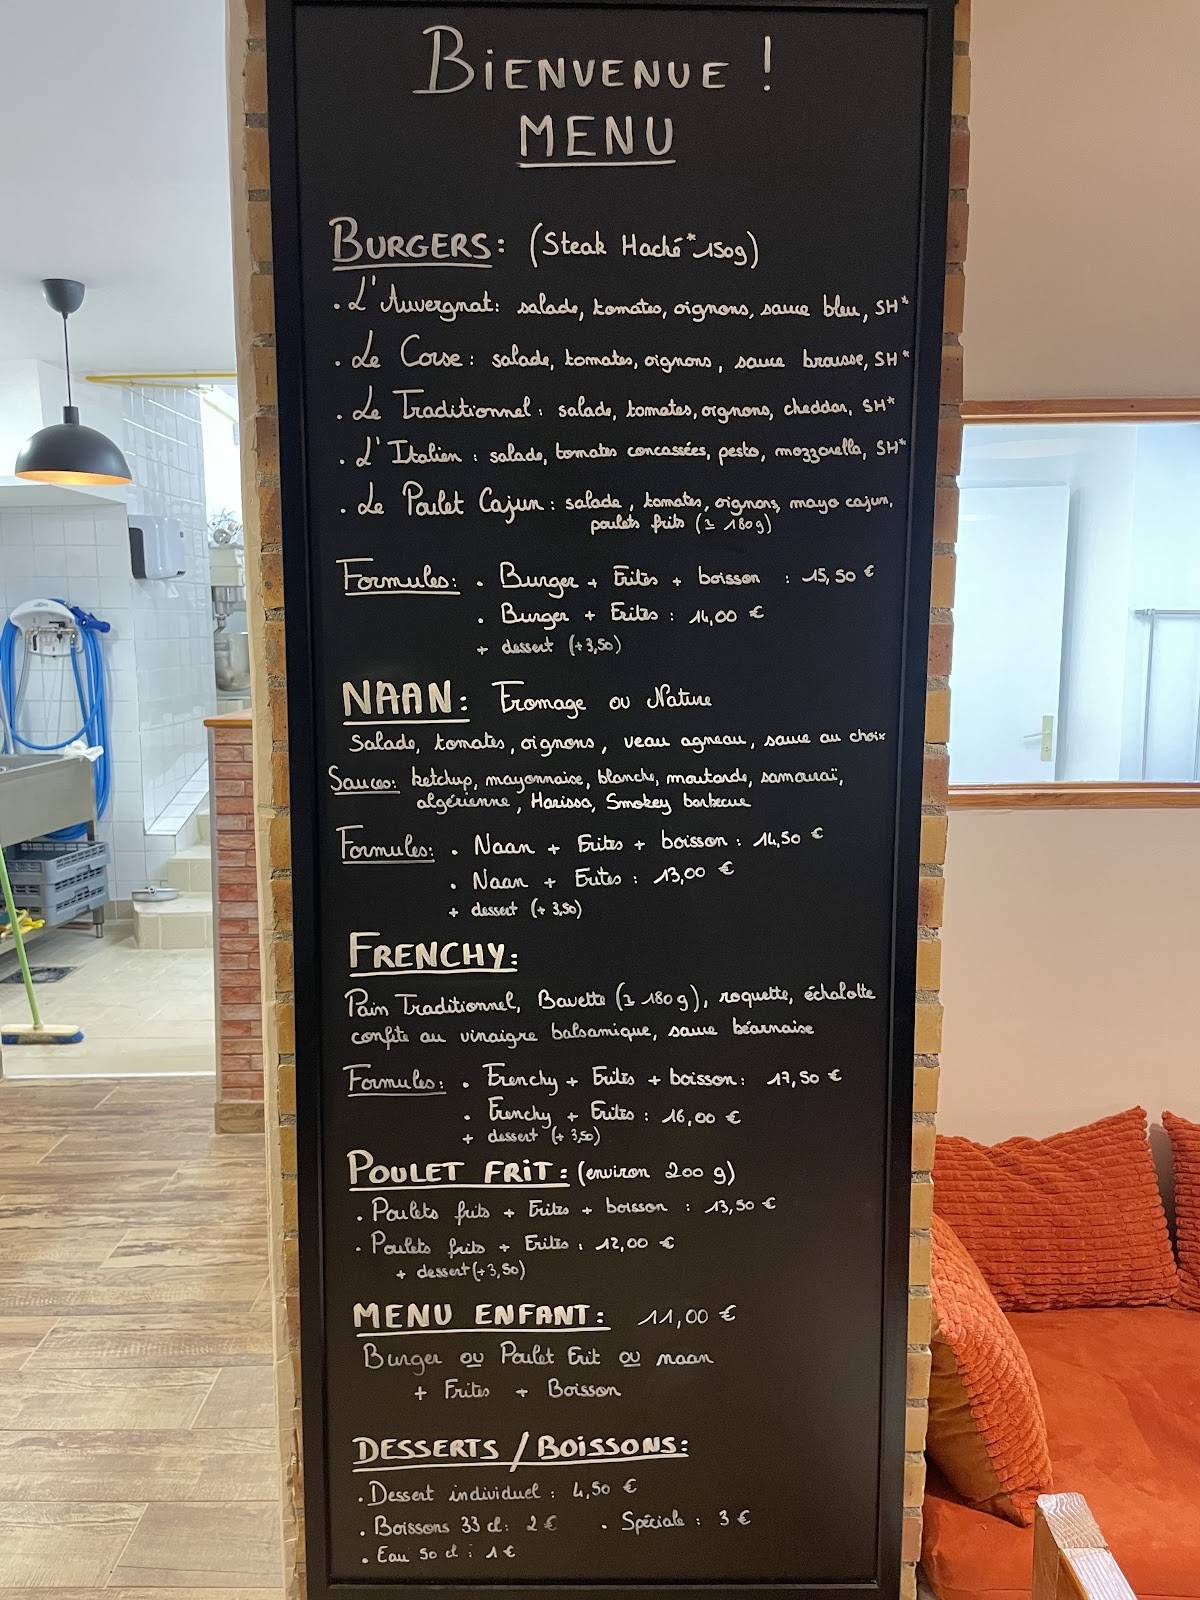 BIENVENUE !
MENU
BURGERS: (Steak Haché*150g)
• L'Auvergnat: salade, tomates, oignons, sauce bleu, SH*
• Le Corse : salade, tomates, oignons, sauce brousse, SH*
• Le Traditionnel : salade, tomates, oignons, cheddar, SH*
• L'Italien : salade, tomates concassées, pesto, mozzarella, SH*
• Le Poulet Cajun : salade, tomates, oignons, mayo cajun,
poulets frits (≃ 180g)
Formules: • Burger + Frites + boisson : 15,50 €
• Burger + Frites : 14,00 €
+ dessert (+3,50)
NAAN: Fromage ou Nature
Salade, tomates, oignons, veau agneau, sauce au choix
Sauces: ketchup, mayonnaise, blanche, moutarde, samouraï,
algérienne, Harissa, Smokey barbecue
Formules: • Naan + Frites + boisson : 14,50 €
• Naan + Frites : 13,00 €
+ dessert (+ 3,50)
FRENCHY:
Pain Traditionnel, Bavette (≃ 180g), roquette, échalotte
confite au vinaigre balsamique, sauce béarnaise
Formules: • Frenchy + Frites + boisson: 17,50 €
• Frenchy + Frites : 16,00 €
+ dessert (+ 3,50)
POULET FRIT : (environ 200 g)
• Poulets frits + Frites + boisson : 13,50 €
• Poulets frits + Frites : 12,00 €
+ dessert (+3,50)
MENU ENFANT: 11,00 €
Burger ou Poulet Frit ou naan
+ Frites + Boisson
DESSERTS / BOISSONS:
• Dessert individuel : 4,50 €
• Boissons 33 cl: 2 € • Spéciale : 3 €
• Eau 50 cl : 1 €